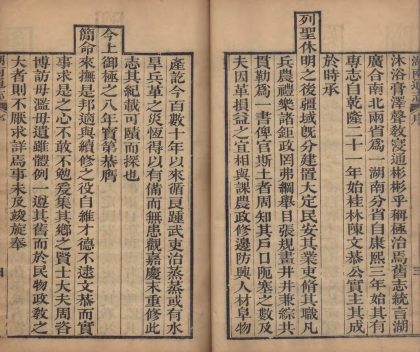 沐浴膏澤聲教通彬彬乎稱極治焉舊志統言湖
廣合南北兩省爲一湖南分省自康熙三年始其有
專志自乾隆二十一年始桂林陳文恭公實主其成
於時承
列聖休明之後疆域旣分建置大定民安其業吏脩其職凡
兵農禮樂諸鉅政罔弗綱舉目張規畫井井兼綜其
貫勒爲一書俾官斯土者周知其戸口阨塞之數及
夫因革損益之宜相與課農政修邊防興人材阜物
產訖今百數十年以來循良踵武吏治蒸蒸或有水
旱兵革之災恆得以有備而無患觀嘉慶末重修此
志其紀載可蹟而探也
今上御極之八年寶第恭膺
簡命來撫是邦適與續修之役自維才德不逮文恭而實
事求是之心不敢不勉爰集其鄉之賢士大夫周咨
博訪毋濫毋遺雖體例一遵其舊而於民物政敎之
大者則不厭求詳焉事未及竣旋奉